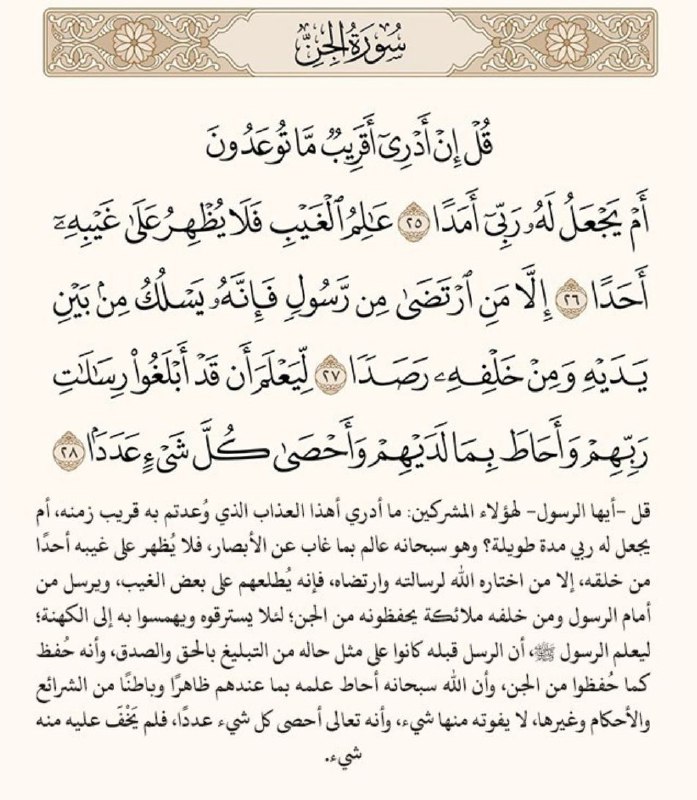 سُورَةُ الجِنِّ
قُلْ إِنْ أَدْرِىٓ أَقَرِيبٌ مَّا تُوعَدُونَ
أَمْ يَجْعَلُ لَهُۥ رَبِّىٓ أَمَدًا ٢٥ عَٰلِمُ ٱلْغَيْبِ فَلَا يُظْهِرُ عَلَىٰ غَيْبِهِۦٓ
أَحَدًا ٢٦ إِلَّا مَنِ ٱرْتَضَىٰ مِن رَّسُولٍ فَإِنَّهُۥ يَسْلُكُ مِنۢ بَيْنِ
يَدَيْهِ وَمِنْ خَلْفِهِۦ رَصَدًا ٢٧ لِّيَعْلَمَ أَن قَدْ أَبْلَغُوا۟ رِسَٰلَٰتِ
رَبِّهِمْ وَأَحَاطَ بِمَا لَدَيْهِمْ وَأَحْصَىٰ كُلَّ شَىْءٍ عَدَدًۢا ٢٨
قل -أيها الرسول- لهؤلاء المشركين: ما أدري أهذا العذاب الذي وُعدتم به قريب زمنه، أم
يجعل له ربي مدة طويلة؟ وهو سبحانه عالم بما غاب عن الأبصار، فلا يُظهر على غيبه أحدًا
من خلقه، إلا من اختاره الله لرسالته وارتضاه، فإنه يُطلعهم على بعض الغيب، ويرسل من
أمام الرسول ومن خلفه ملائكة يحفظونه من الجن؛ لئلا يسترقوه ويهمسوا به إلى الكهنة؛
ليعلم الرسول ﷺ، أن الرسل قبله كانوا على مثل حاله من التبليغ بالحق والصدق، وأنه حُفظ
كما حُفظوا من الجن، وأن الله سبحانه أحاط علمه بما عندهم ظاهرًا وباطنًا من الشرائع
والأحكام وغيرها، لا يفوته منها شيء، وأنه تعالى أحصى كل شيء عددًا، فلم يَخْفَ عليه منه
شيء.